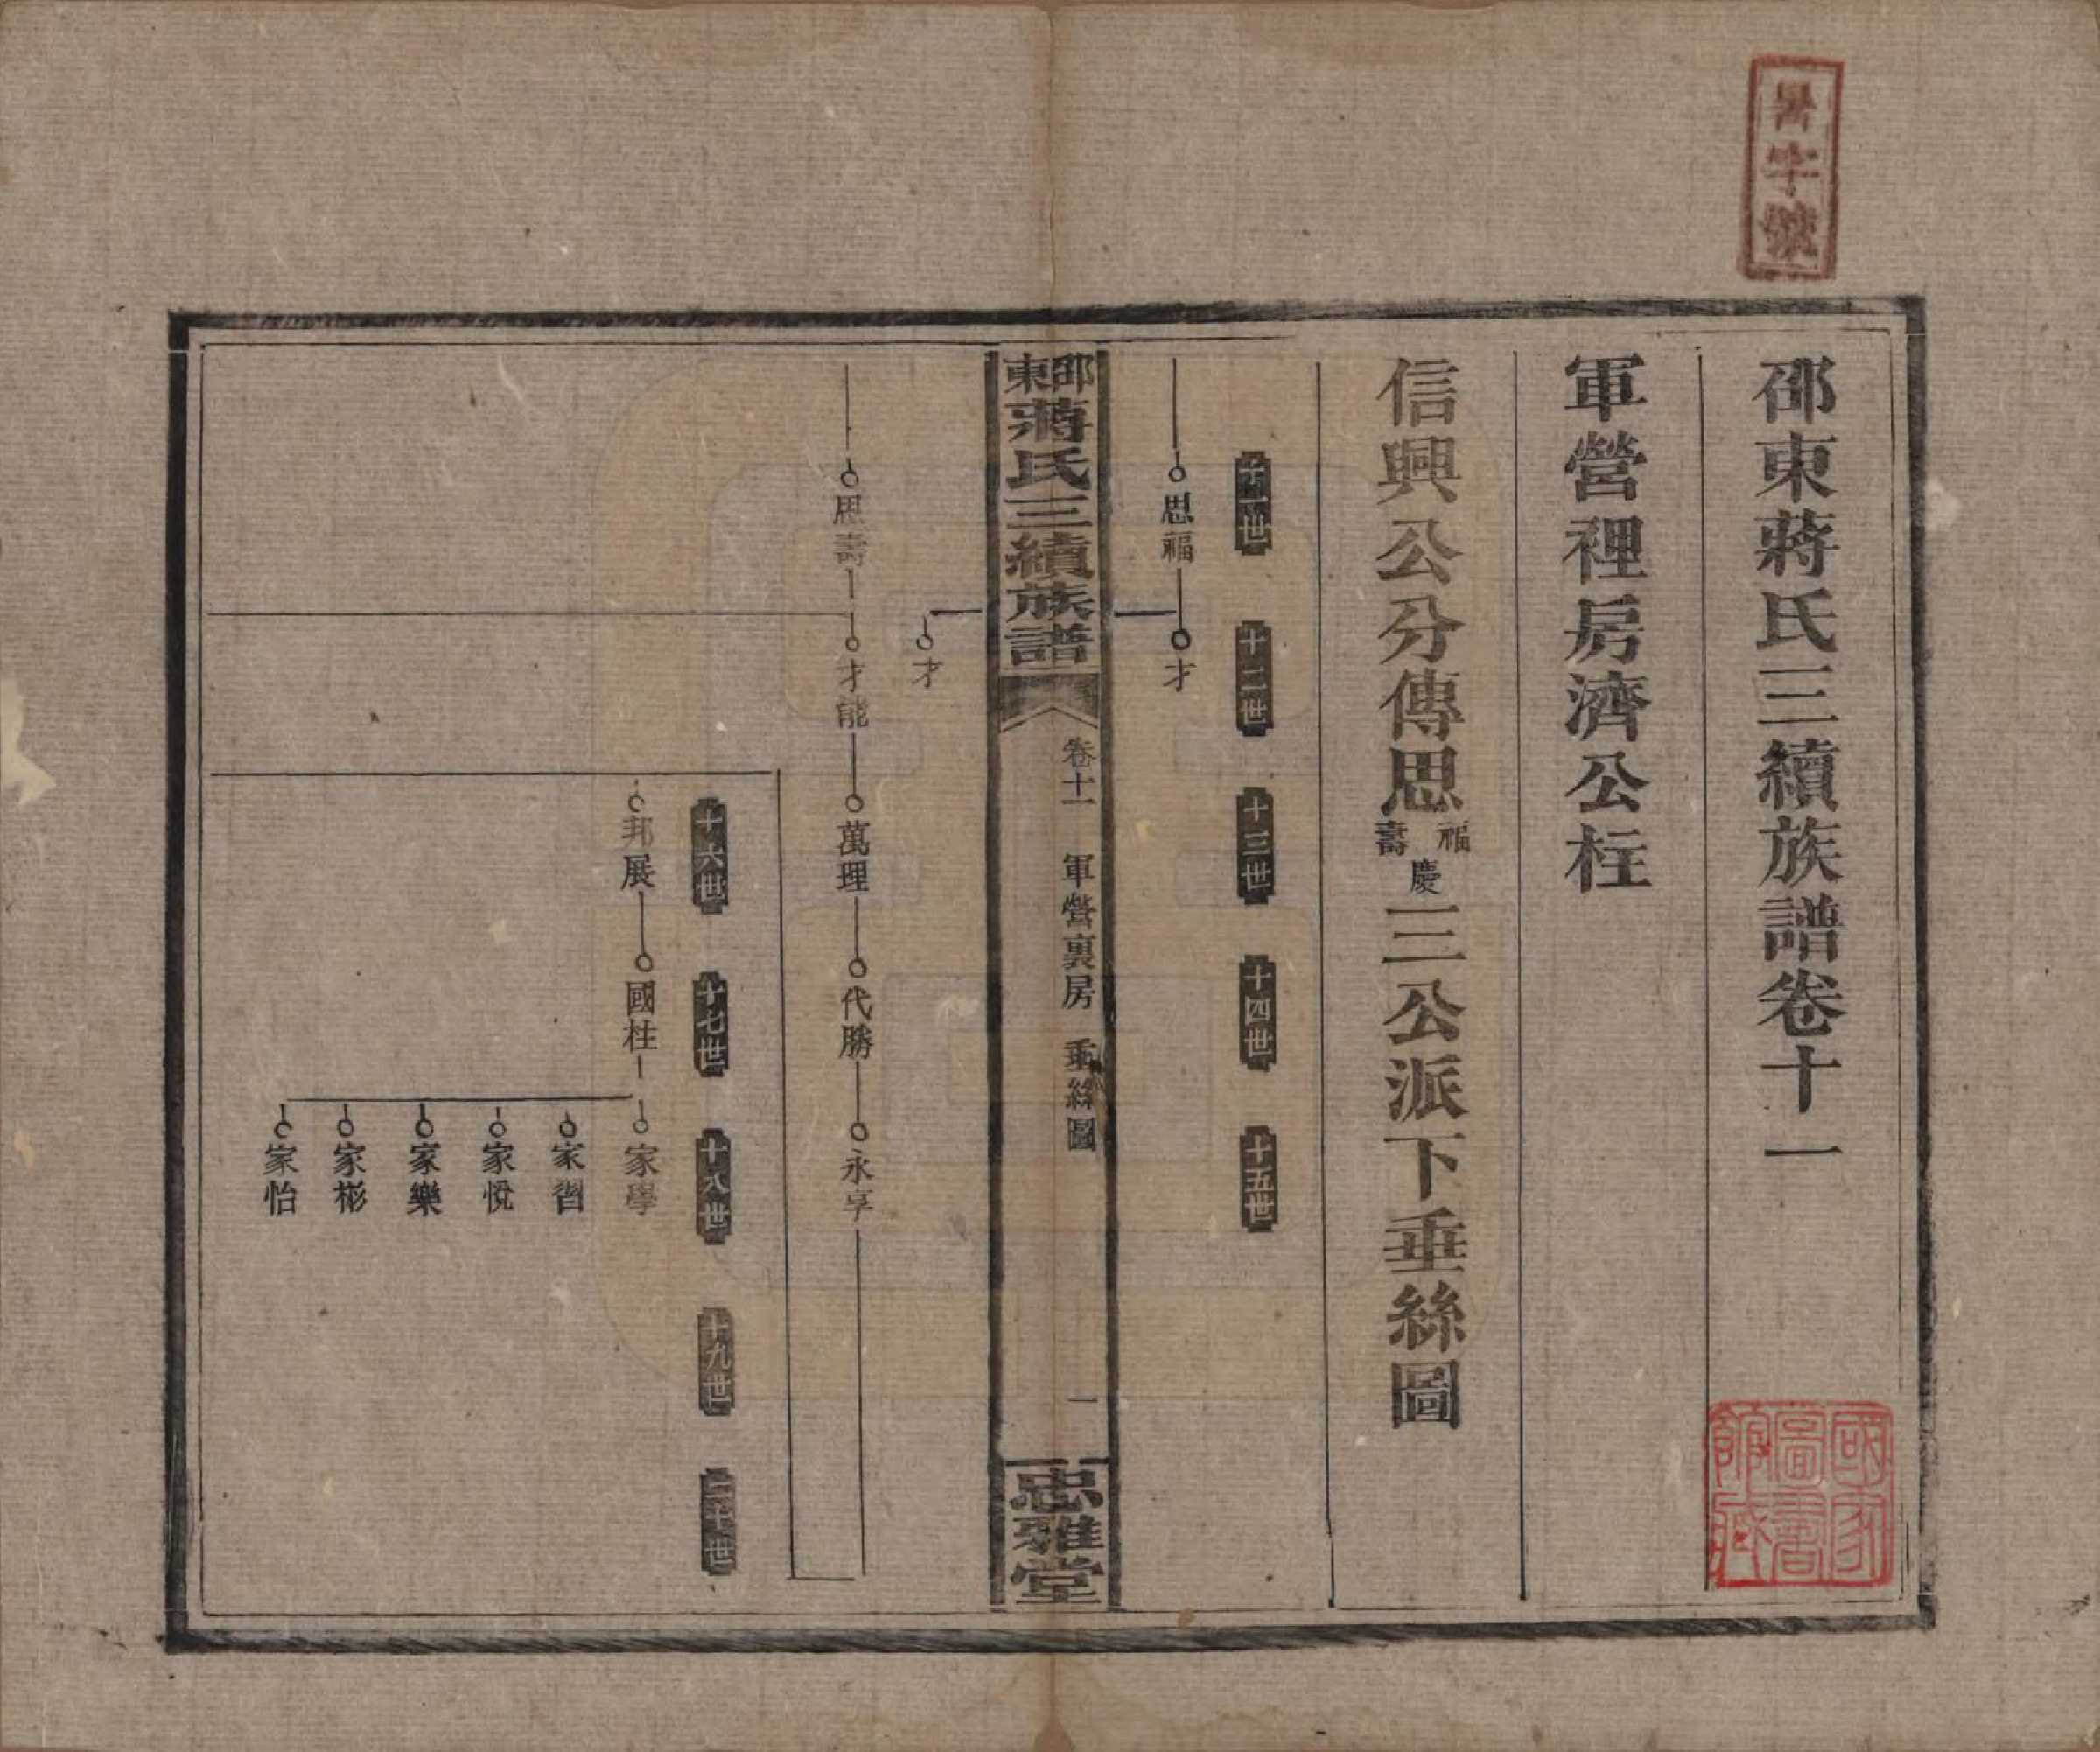 暑字號
邵東蔣氏三續族譜卷十一
軍營裡房濟公柱
信興公分傳思福慶壽三公派下垂絲圖
十一世
十二世
十三世
十四世
十五世
思福
才
邵東蔣氏三續族譜
卷十一
軍營裏房
垂絲圖
一
忠雅堂
才
思壽
才能
萬理
代勝
永享
十六世
十七世
十八世
十九世
二十世
邦展
國柱
家學
家習
家悅
家樂
家彬
家怡
國家圖書館藏